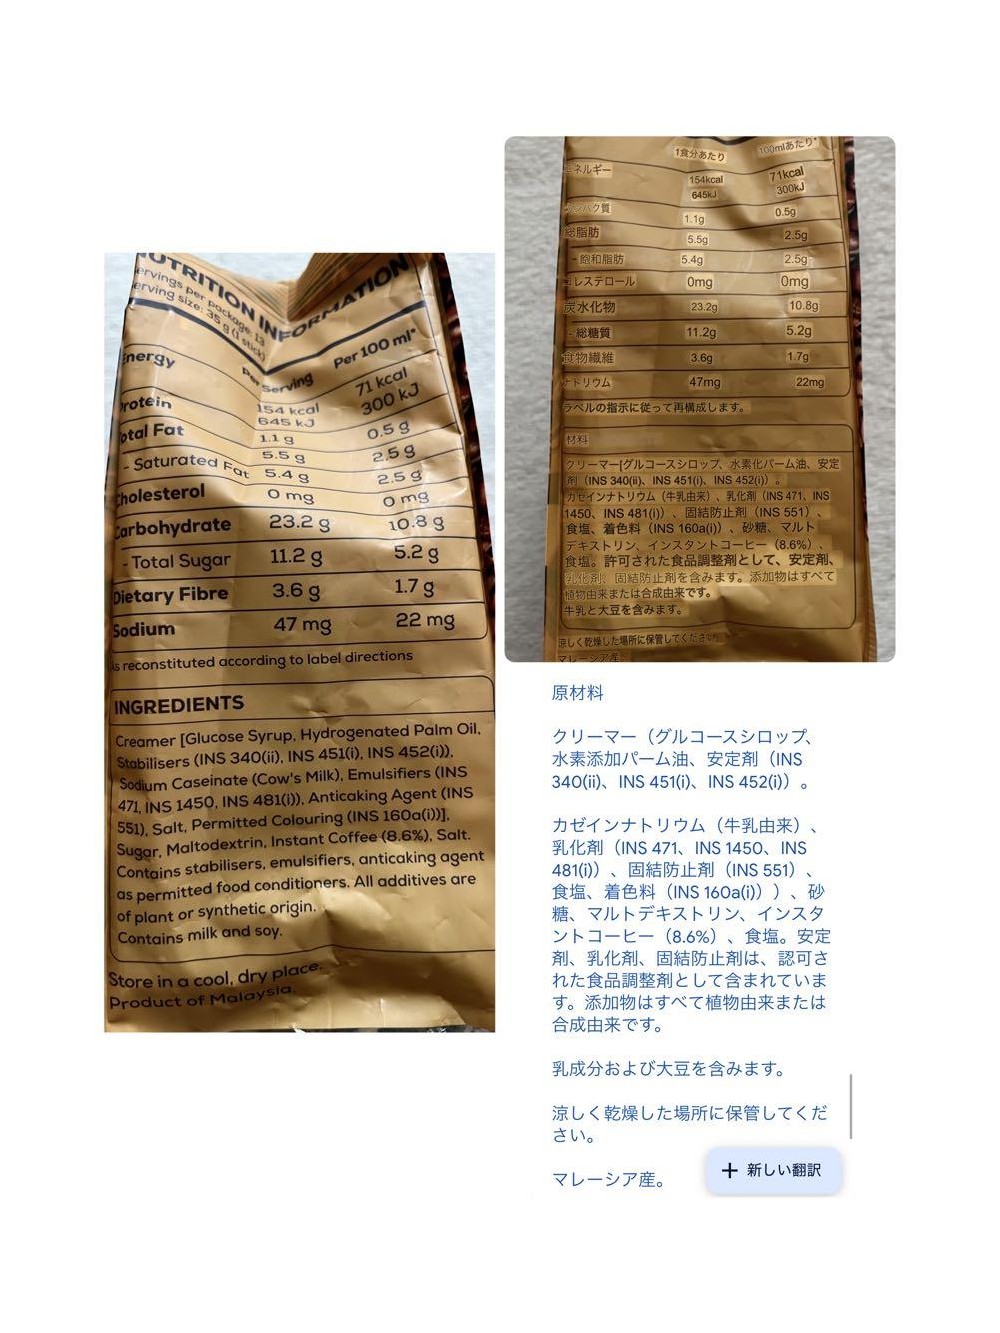 NUTRITION INFORMATION
ervings per package: 13
erving size: 35 g (1 stick)
Per Serving
Per 100 ml*
Energy
154 kcal
71 kcal
645 kJ
300 kJ
Protein
1.1 g
0.5 g
otal Fat
5.5 g
2.5 g
- Saturated Fat
5.4 g
2.5 g
Cholesterol
0 mg
0 mg
Carbohydrate
23.2 g
10.8 g
- Total Sugar
11.2 g
5.2 g
Dietary Fibre
3.6 g
1.7 g
Sodium
47 mg
22 mg
As reconstituted according to label directions
INGREDIENTS
Creamer [Glucose Syrup, Hydrogenated Palm Oil,
Stabilisers (INS 340(ii), INS 451(i), INS 452(i)),
Sodium Caseinate (Cow's Milk), Emulsifiers (INS
471, INS 1450, INS 481(i)), Anticaking Agent (INS
551), Salt, Permitted Colouring (INS 160a(i))],
Sugar, Maltodextrin, Instant Coffee (8.6%), Salt.
Contains stabilisers, emulsifiers, anticaking agent
as permitted food conditioners. All additives are
of plant or synthetic origin.
Contains milk and soy.
Store in a cool, dry place.
Product of Malaysia.
1食分あたり
100mlあたり*
エネルギー
154kcal
71kcal
645kJ
300kJ
タンパク質
1.1g
0.5g
総脂肪
5.5g
2.5g
- 飽和脂肪
5.4g
2.5g
コレステロール
0mg
0mg
炭水化物
23.2g
10.8g
- 総糖質
11.2g
5.2g
食物繊維
3.6g
1.7g
ナトリウム
47mg
22mg
ラベルの指示に従って再構成します。
材料
クリーマー[グルコースシロップ、水素化パーム油、安定
剤（INS 340(ii)、INS 451(i)、INS 452(i)）。
カゼインナトリウム（牛乳由来）、乳化剤（INS 471、INS
1450、INS 481(i)）、固結防止剤（INS 551）、
食塩、着色料（INS 160a(i)）、砂糖、マルト
デキストリン、インスタントコーヒー（8.6%）、
食塩。許可された食品調整剤として、安定剤、
乳化剤、固結防止剤を含みます。添加物はすべて
植物由来または合成由来です。
牛乳と大豆を含みます。
涼しく乾燥した場所に保管してください。
マレーシア産
原材料
クリーマー（グルコースシロップ、
水素添加パーム油、安定剤（INS
340(ii)、INS 451(i)、INS 452(i)）。
カゼインナトリウム（牛乳由来）、
乳化剤（INS 471、INS 1450、INS
481(i)）、固結防止剤（INS 551）、
食塩、着色料（INS 160a(i)））、砂
糖、マルトデキストリン、インスタ
ントコーヒー（8.6%）、食塩。安定
剤、乳化剤、固結防止剤は、認可さ
れた食品調整剤として含まれていま
す。添加物はすべて植物由来または
合成由来です。
乳成分および大豆を含みます。
涼しく乾燥した場所に保管してくだ
さい。
マレーシア産。
+ 新しい翻訳